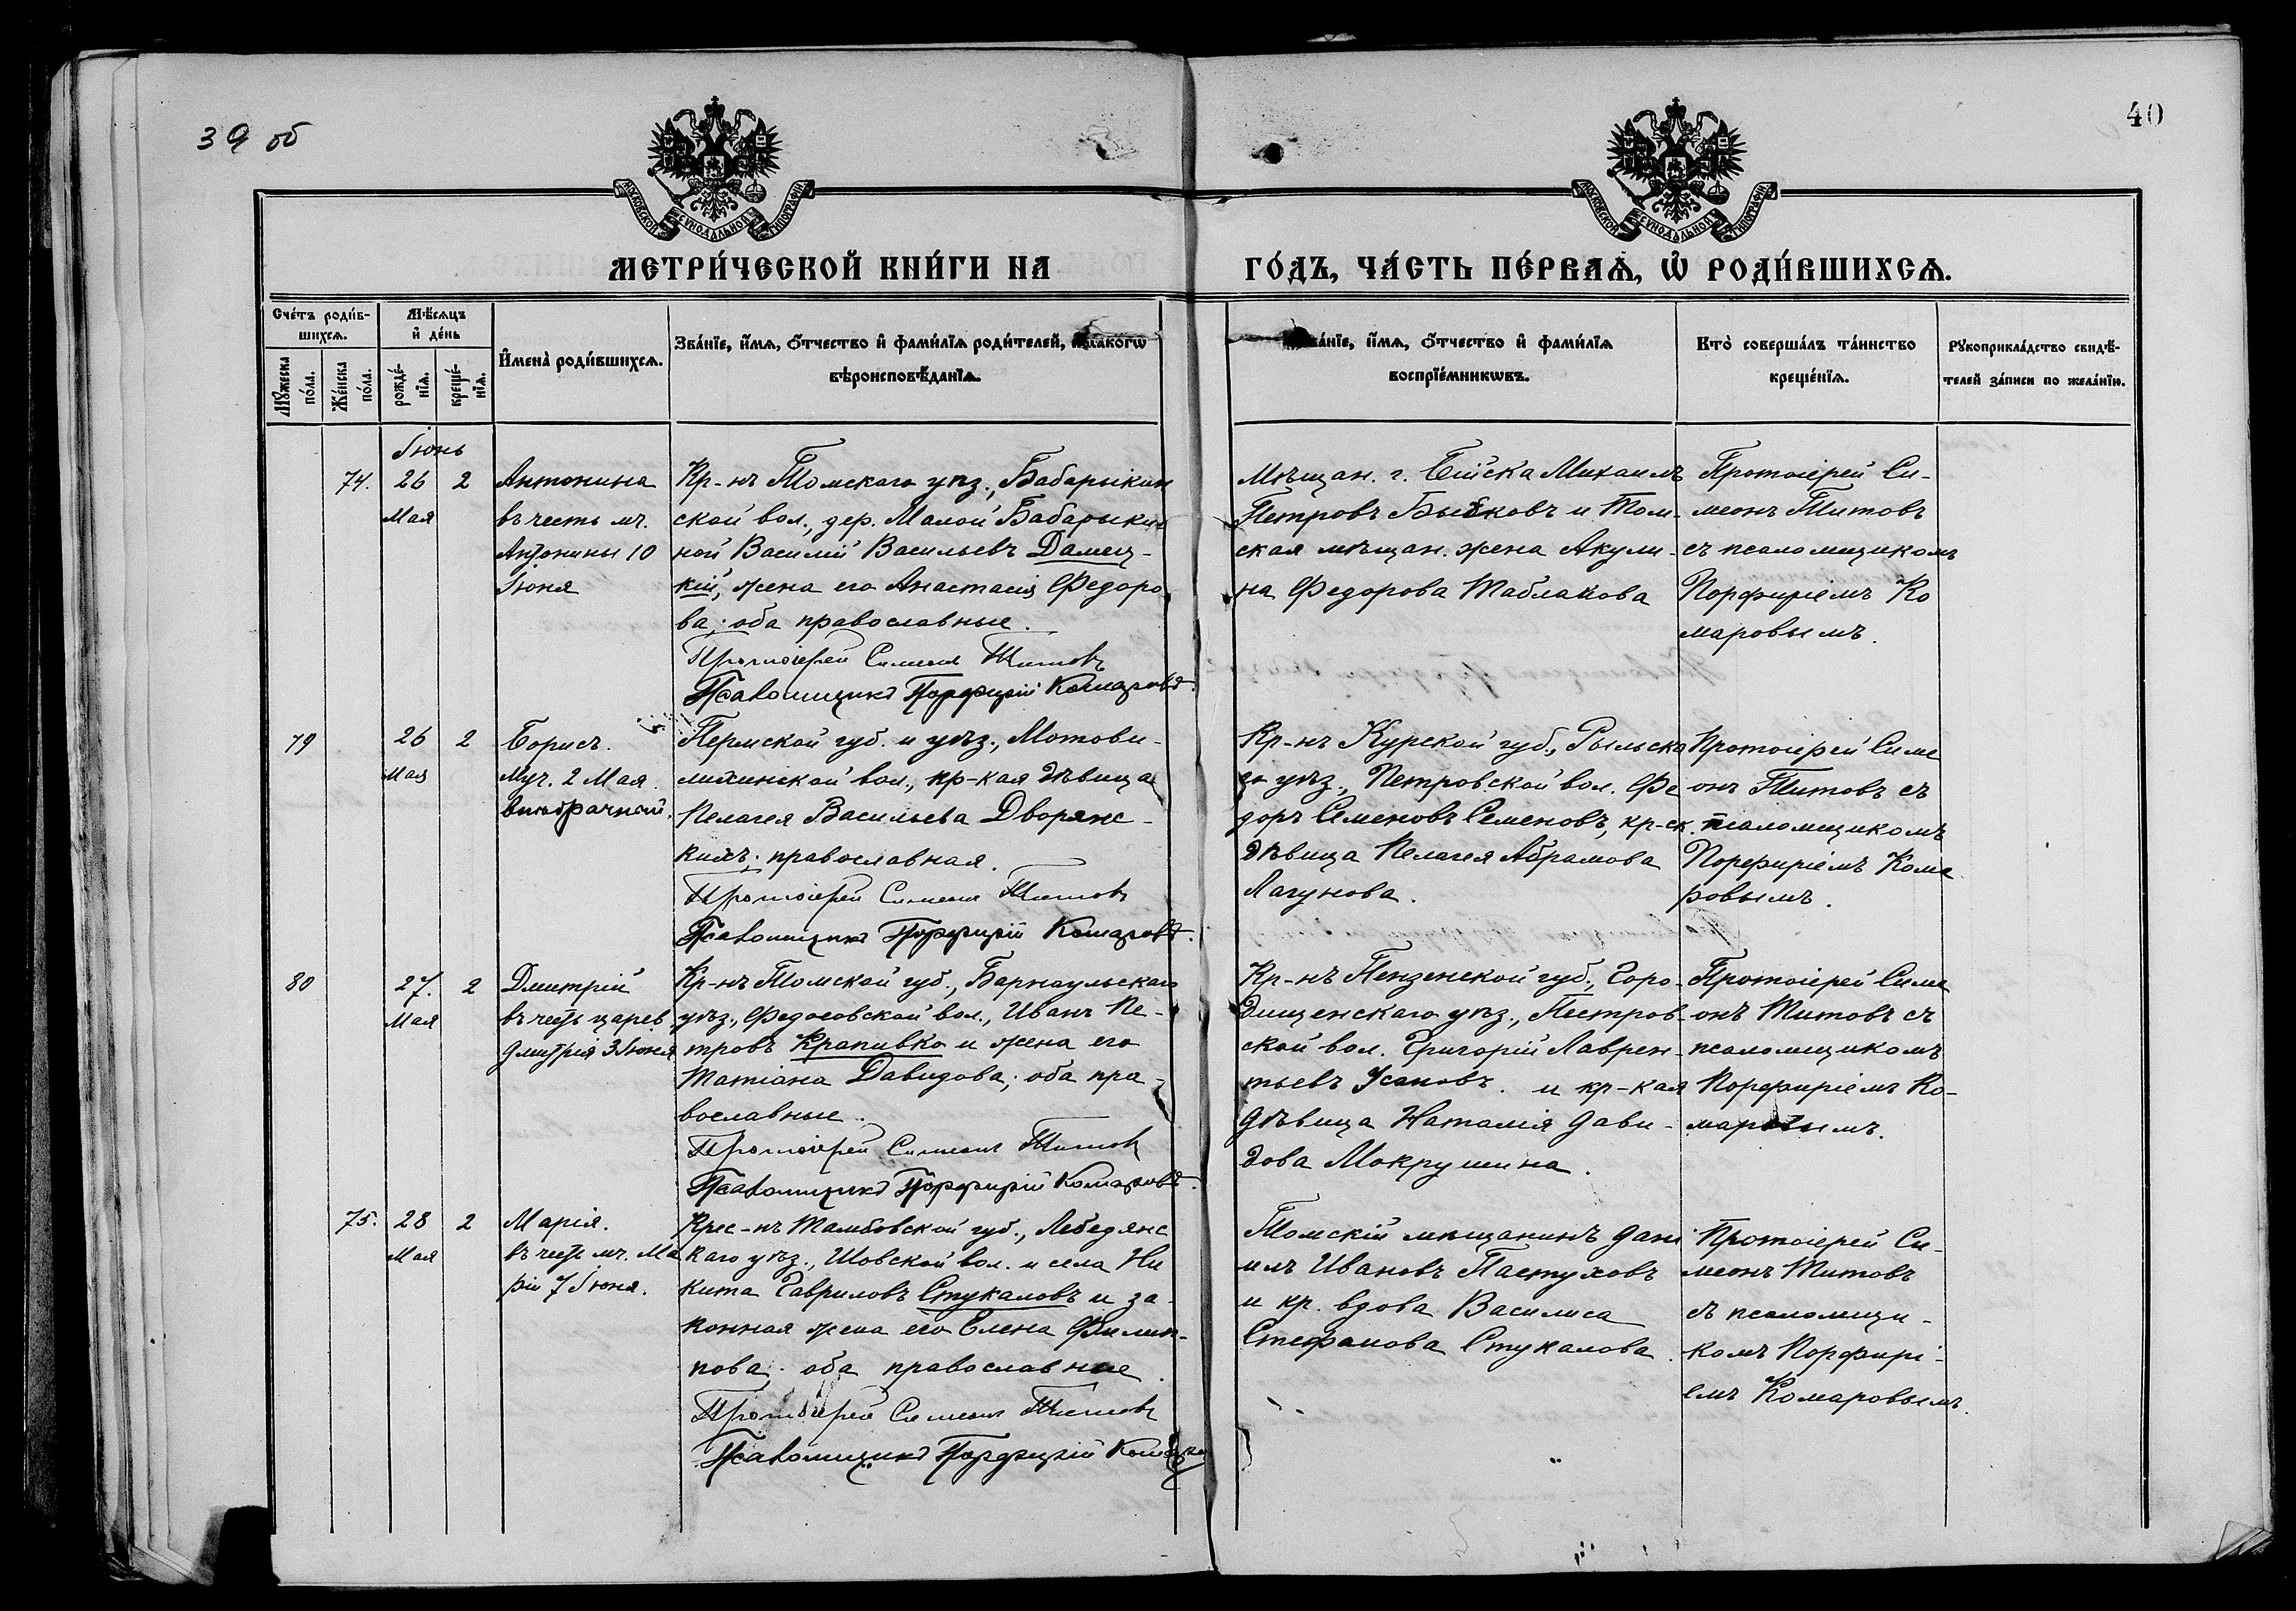 39 об
40
МОСКОВСКОЙ СѴНОДАЛЬНОЙ ТИПОГРАФІИ
МОСКОВСКОЙ СѴНОДАЛЬНОЙ ТИПОГРАФІИ
МЕТРИ́ЧЕСКОЙ КНИ́ГИ НА
ГО́ДЪ, ЧА́СТЬ ПЕ́РВАѦ, Ѡ҆ РОДИ́ВШИХСѦ.
Сче́тъ роди́в-
шихсѧ.
Мꙋ́жеска
по́ла.
Же́нска
по́ла.
Мѣ́сѧцъ
и҆ де́нь
рожде́-
нїѧ.
креще́-
нїѧ.
И҆мена̀ роди́вшихсѧ.
Зва́нїе, и҆́мѧ, ѻ҆́тчество и҆ фами́лїѧ роди́телей, и҆ како́гѡ
вѣроисповѣ́данїѧ.
Зва́нїе, и҆́мѧ, ѻ҆́тчество и҆ фами́лїѧ
воспрїе́мникѡвъ.
Кто̀ соверша́лъ та́инство
креще́нїѧ.
Рꙋкоприкла́дство свидѣ́-
телей за́писи по жела́нїю.
Іюнь
74. 26 2
Мая
Антонина
въ честь мч.
Антонины 10
Іюня
Кр-нъ Томскаго уѣз., Бабарыкин
ской вол., дер. Малой Бабарыки
ной Василій Васильевъ Дамец-
кій, жена его Анастасія Федоро
ва; оба православные.
Протоіерей Симеон Титовъ
Псаломщикъ Порфирій Комаровъ.
Мѣщан. г. Бійска Михаилъ
Петровъ Быковъ и Том-
ская мѣщан. жена Акули-
на Федорова Таблакова
Протоіерей Си-
меонъ Титовъ
съ псаломщикомъ
Порфиріемъ Ко
маровымъ.
79 26 2
Мая
Борисъ.
Муч. 2 Мая.
внѣбрачный.
Пермской губ. и уѣз., Мотови-
лихинской вол., кр-кая дѣвица
Пелагея Васильева Дворянс-
кихъ; православная.
Протоіерей Симеон Титовъ
Псаломщикъ Порфирій Комаровъ.
Кр-нъ Курской губ., Рыльска
го уѣз., Петровской вол. Фе
доръ Семеновъ Семеновъ, кр-ск.
дѣвица Пелагея Абрамова
Лагунова.
Протоіерей Симе
онъ Титовъ съ
псаломщикомъ
Порфиріемъ Кома
ровымъ.
80 27. 2
Мая
Дмитрій
въ честь царев.
Дмитрія 3 Іюня
Кр-нъ Томской губ., Барнаульскаго
уѣз., Федосовской вол., Иванъ Пе-
тровъ Крапивко и жена его
Татіана Давидова; оба пра-
вославные.
Протоіерей Симеон Титовъ
Псаломщикъ Порфирій Комаровъ.
Кр-нъ Пензенской губ., Горо-
дищенскаго уѣз., Пестров-
ской вол. Григорій Лаврен-
тьевъ Усановъ. и кр-кая
дѣвица Наталія Дави-
дова Мокрушина.
Протоіерей Симе
онъ Титовъ съ
псаломщикомъ
Порфиріемъ Ко-
маровымъ.
75. 28 2
Мая
Марія.
въ честь мч. Ма
ріи 7 Іюня.
Крес-нъ Тамбовской губ., Лебедянс
каго уѣз., Шовской вол. и села Ни
кита Гавриловъ Стукаловъ и за-
конная жена его Елена Филип-
пова; оба православные.
Протоіерей Симеон Титовъ
Псаломщикъ Порфирій
Томскій мѣщанинъ Дани
илъ Ивановъ Пастуховъ
и кр. вдова Василиса
Стефанова Стукалова.
Протоіерей Си-
меонъ Титовъ
съ псаломщи-
комъ Порфирі-
емъ Комаровымъ.